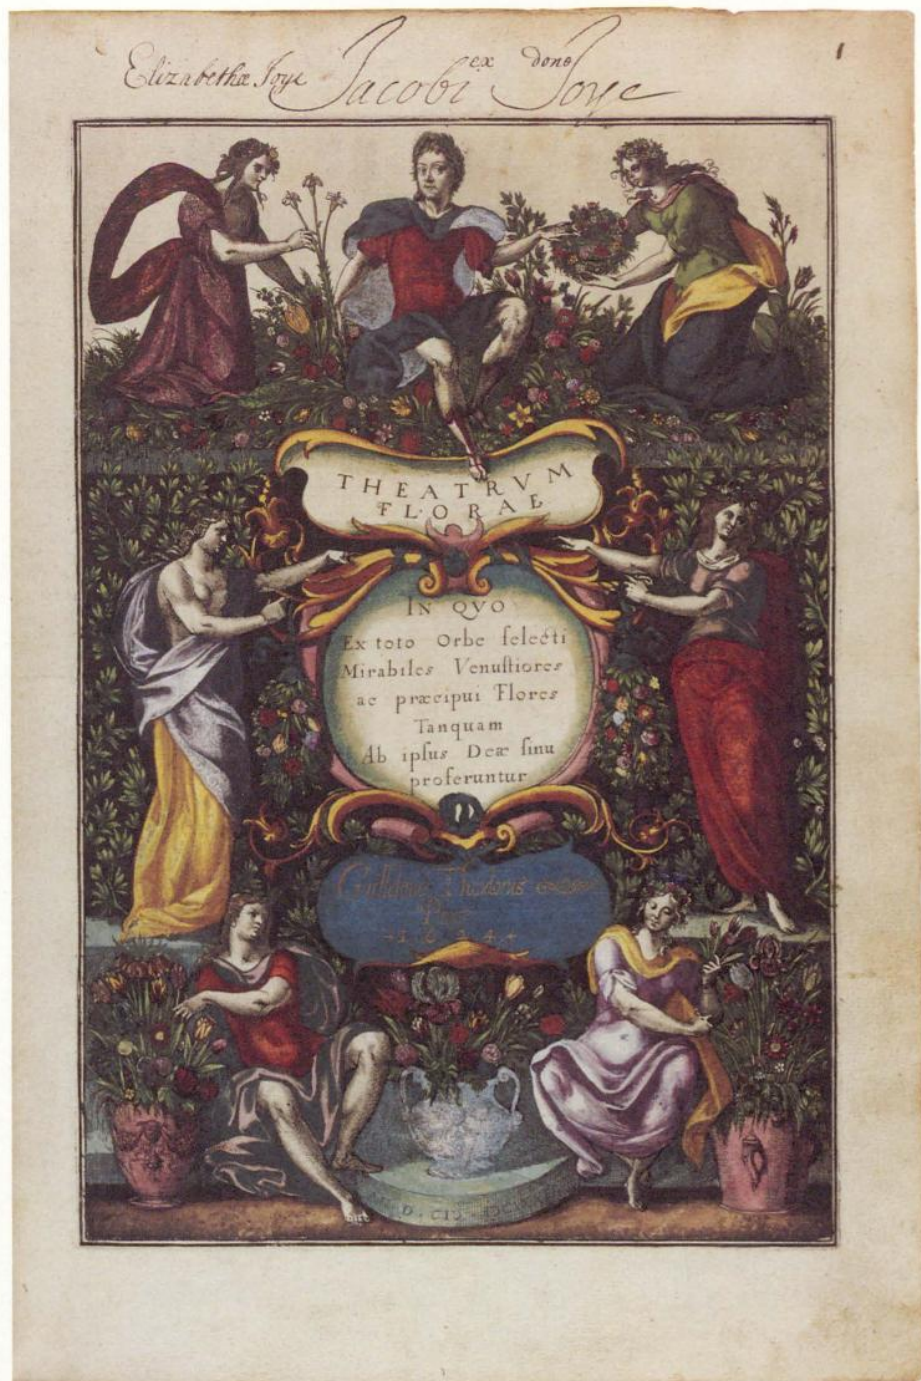 Elizabethæ Joye Jacobi ex dono Joye
1
THEATRVM
FLORAE
IN QVO
Ex toto Orbe ſelecti
Mirabiles Venuſtiores
ac præcipui Flores
Tanquam
Ab ipſus Deæ ſinu
proferuntur